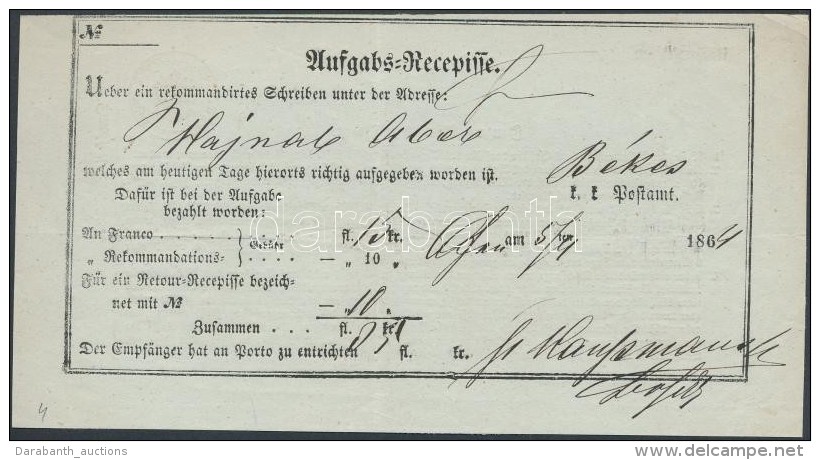 №
Aufgabs-Recepisse.
Ueber ein rekommandirtes Schreiben unter der Adresse:
Hajnal Abel
Békes
welches am heutigen Tage hierorts richtig aufgegeben worden ist.
k. k Postamt.
Dafür ist bei der Aufgabe
bezahlt worden:
An Franco . . . . . Gebühr . . . . fl. 15 kr.
am 5/4 ten 1864
„ Rekommandations- . . . . — „ 10 „
Für ein Retour-Recepisse bezeich-
net mit № — „ 10 „
Zusammen . . . fl. 35 kr.
Der Empfänger hat an Porto zu entrichten fl. kr.
4
darabanth
Darabanth_auctions
delcampe.net